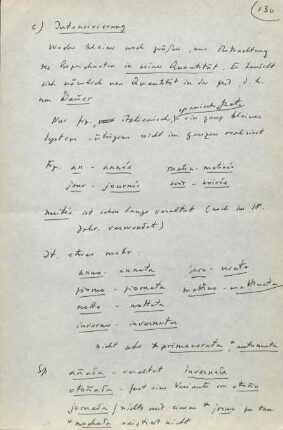 (130)
c) Intensivierung
Weder kleiner noch größer, nur Betrachtung
des Bezeichneten in seiner Quantität. Es handelt
sich nämlich um Quantität in der Zeit, d.h.
um Dauer
Nur frz., italienisch, spanisch, kat.
ein ganz kleines
System - übrigens nicht im ganzen realisiert
Frz. an - année matin - matinée
jour - journée soir - soirée
nuitée ist schon lange veraltet (noch im 18.
Jahr. verwendet)
It. etwas mehr:
anno - annata sera - serata
giorno - giornata mattino - mattinata
notte - nottata
inverno - invernata
nicht aber *primaverata *autunnata
Sp. añada - veraltet invernada
otoñada - fast eine Variante von otoño
jornada / nichts mit einem *jorno zu tun
*nochada existiert nicht